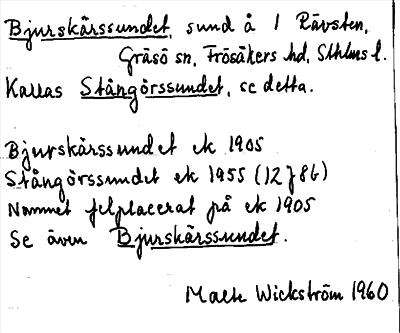 Bjurskärssundet, sund å 1 Rävsten,
Gräsö sn, Frösåkers hd, Sthlms l.
Kallas Stångörssundet, se detta.
Bjurskärssundet ek 1905
Stångörssundet ek 1955 (12J8G)
Namnet felplacerat på ek 1905
Se även Bjurskärssundet.
Malte Wickström 1960